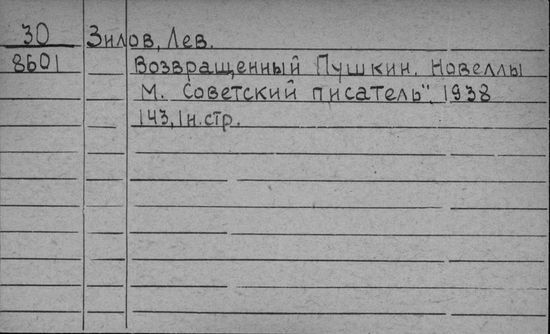 30 Зилов, Лев.
8601 Возвращенный Пушкин. Новеллы
М. Советский писатель", 1938
143, 1н.стр.